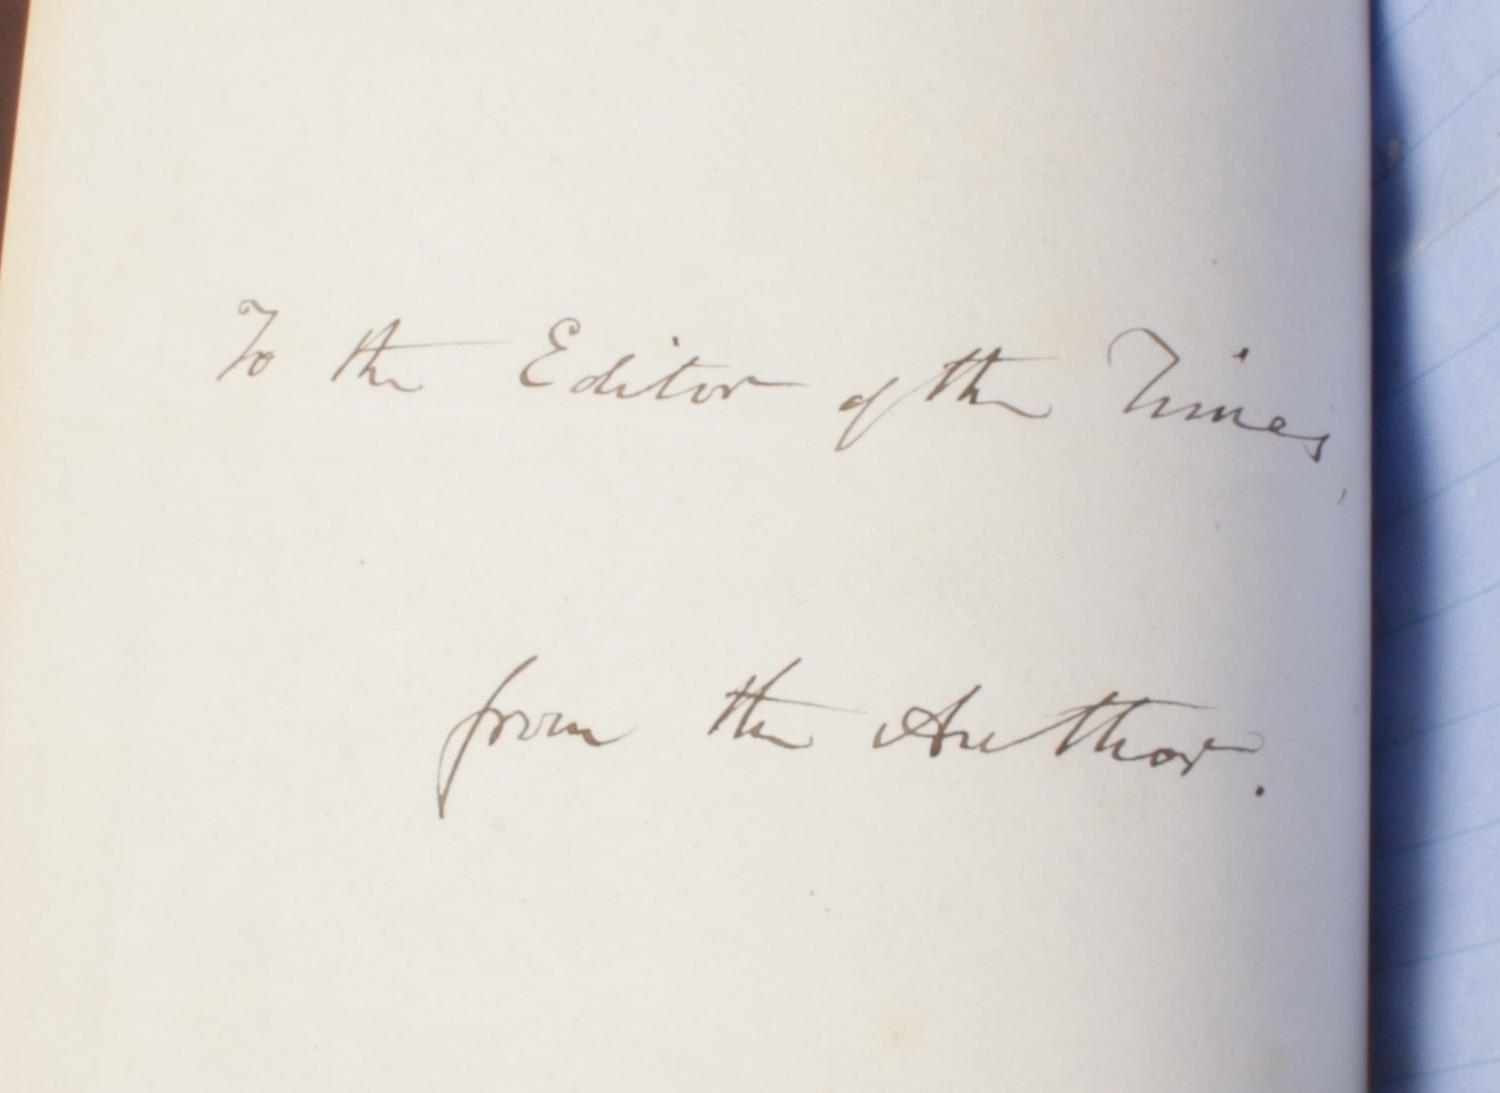 To the Editor of the Times,
from the Author.